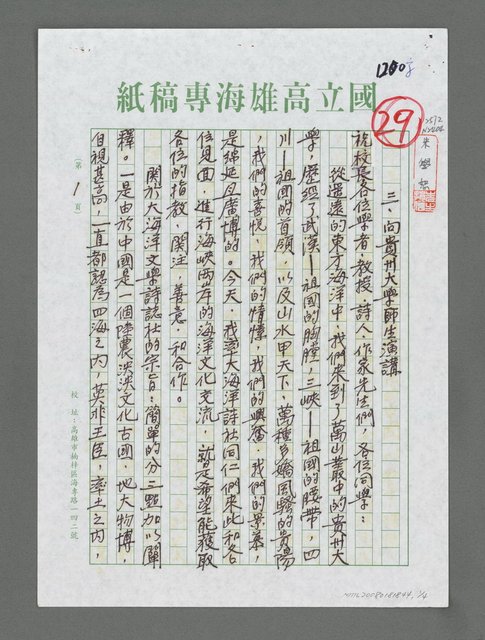 1200字
國立高雄海專稿紙
29
2512
朱學恕
三、向貴州大學師生演講
祝校長各位學者、教授、詩人、作家先生們,各位同學:
從遙遠的東方海洋中,我們來到了萬山叢中的貴州大
學,歷經了武漢—祖國的胸膛,三峽—祖國的腰帶,四
川—祖國的首領,以及山水甲天下、萬種多嬌風騷的貴陽
,我們的喜悅、我們的情愫,我們的興奮、我們的景慕,
是綿延且廣博的。今天,我率大海洋詩社同仁們來此和各
位見面,進行海峽兩岸的海洋文化交流,就是希望能獲取
各位的指教、関注、善意、和合作。
関於大海洋文學詩誌社的宗旨:簡單的分三點加以闡
釋。一是由於中國是一個陸農決決文化古國、地大物博,
自視甚高,一直都認為四海之內,莫非王臣,率土之內,
(第1頁)
校址:高雄市楠梓區海專路一四二號
NMTL20080181844, 1/4